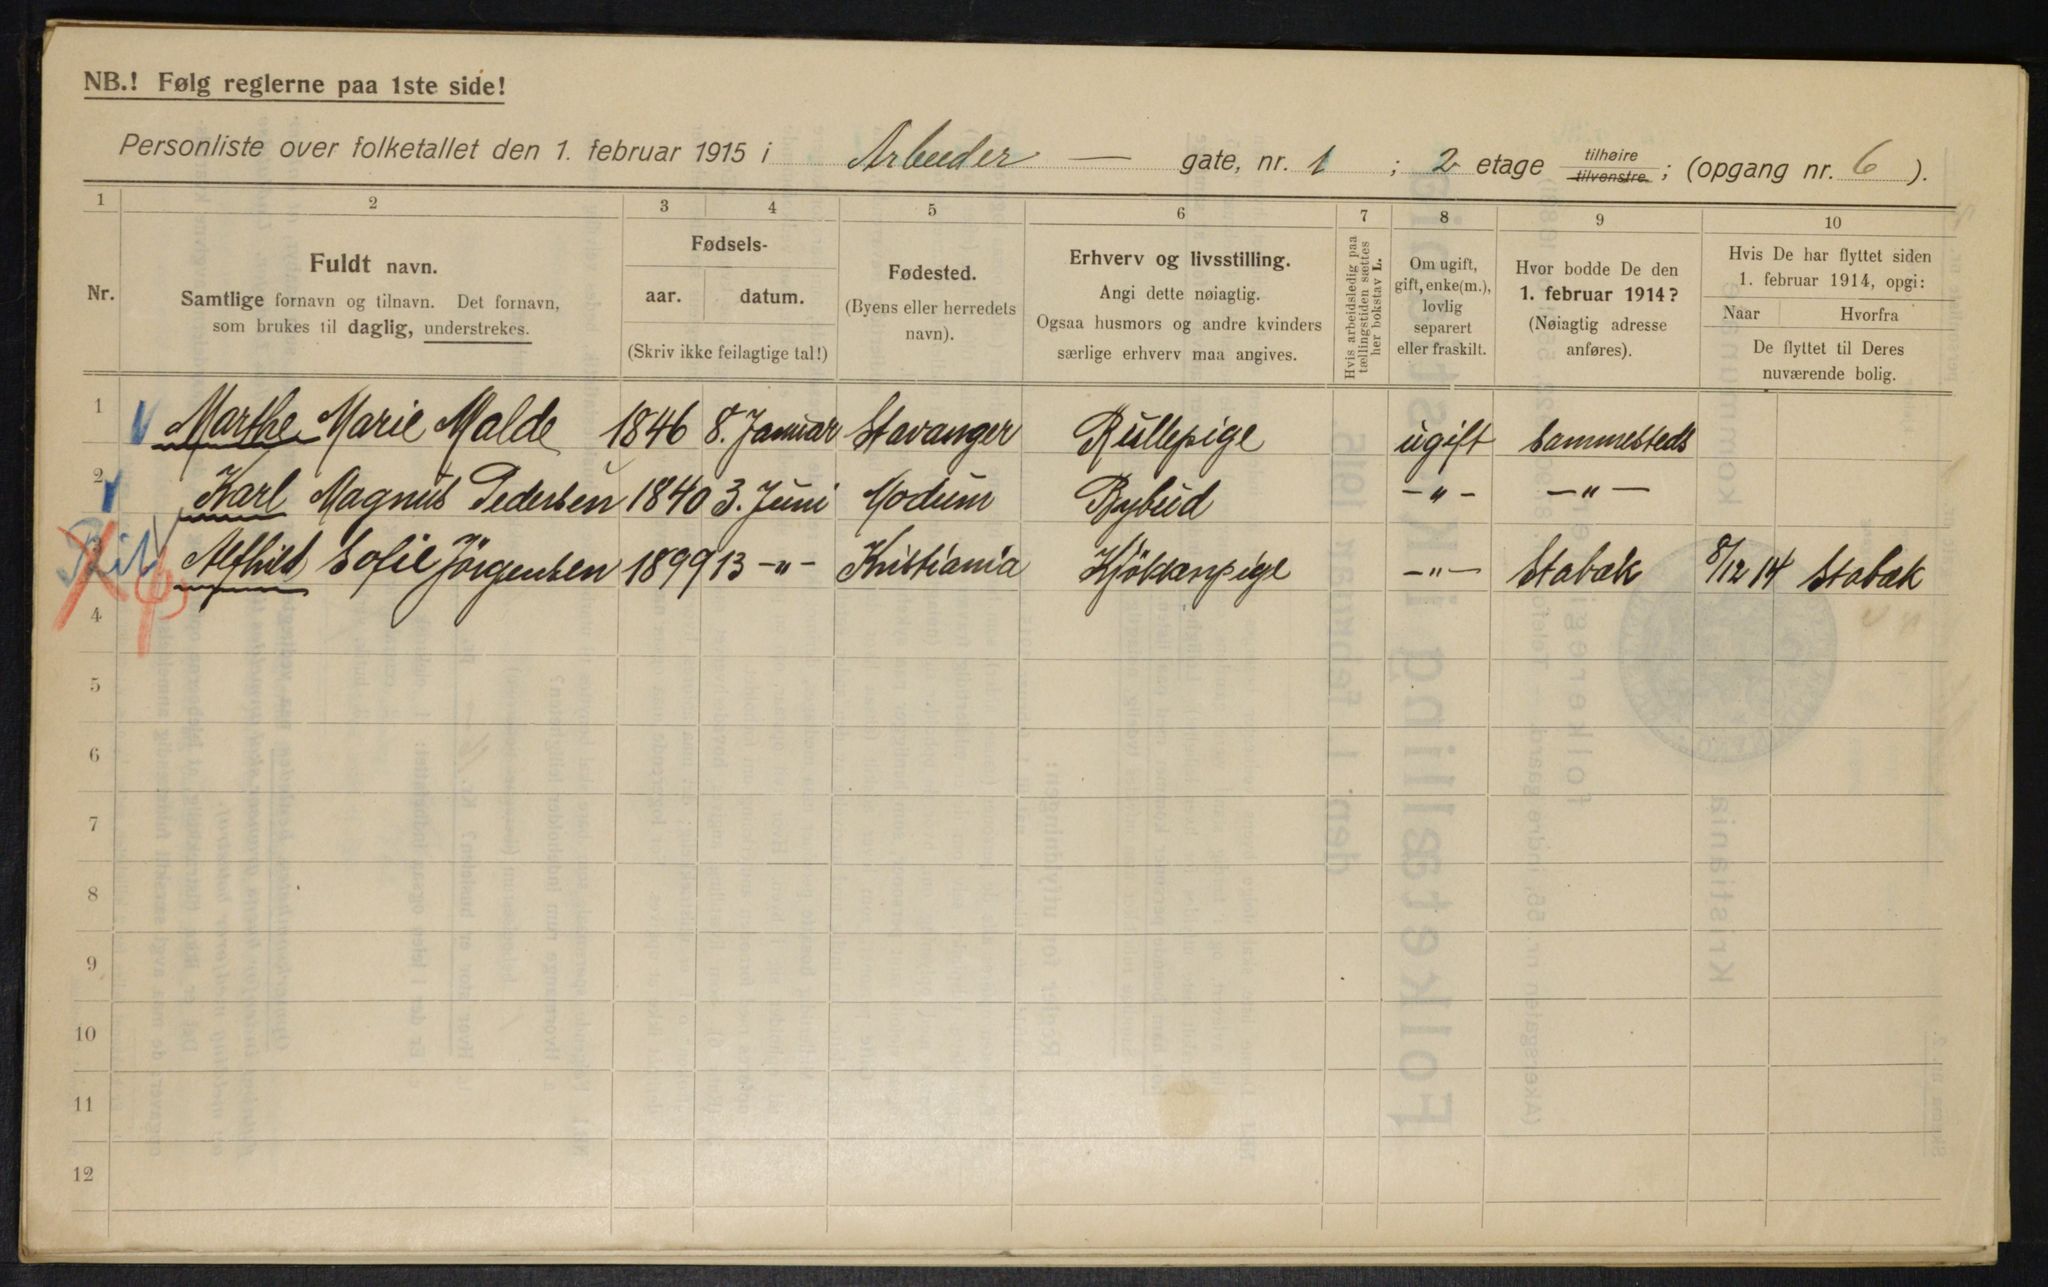 NB.! Følg reglerne paa 1ste side!
Personliste over folketallet den 1. februar 1915 i Arbeider — gate, nr. 1 ; 2 etage tilhøire tilvenstre ; (opgang nr. 6 ).
1 2 3 4 5 6 7 8 9 10
Nr.
Fuldt navn.
Samtlige fornavn og tilnavn. Det fornavn,
som brukes til daglig, understrekes.
Fødsels-
aar. datum.
(Skriv ikke feilagtige tal!)
Fødested.
(Byens eller herredets
navn).
Erhverv og livsstilling.
Angi dette nøiagtig.
Ogsaa husmors og andre kvinders
særlige erhverv maa angives.
Hvis arbeidsledig paa
tællingstiden sættes
her bokstav L.
Om ugift,
gift, enke(m.),
lovlig
separert
eller fraskilt.
Hvor bodde De den
1. februar 1914?
(Nøiagtig adresse
anføres).
Hvis De har flyttet siden
1. februar 1914, opgi:
Naar Hvorfra
De flyttet til Deres
nuværende bolig.
1 Marthe Marie Malde 1846 8. Januar Stavanger Rullepige ugift Sammesteds
2 Karl Magnus Pedersen 1840 3. Juni Modum Bybud —„— —„—
3 Alfhild Sofie Jörgensen 1899 13 —„— Kristiania Kjökkenpige —„— Stabæk 8/12 14 Stabæk
4
5
6
7
8
9
10
11
12